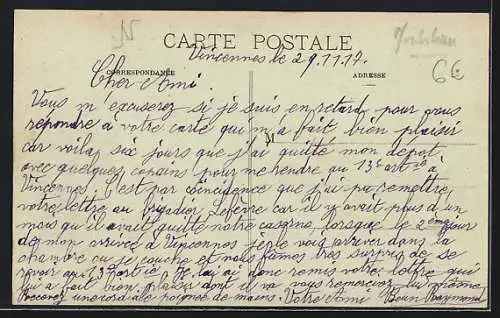 CARTE POSTALE
Vincennes le 29.11.17.
CORRESPONDANCE
ADRESSE
6€
Cher Ami.
Vous m'excuserez si je suis en retard pour vous
répondre à votre carte qui m'a fait bien plaisir
car voila six jours que j'ai quitté mon dépot,
avec quelques copains pour me rendre au 13e art ie à
Vincennes. C'est par coincidence que j'ai pu remettre
votre lettre au brigadier Lefèvre car il y avait plus d'un
mois qu'il avait quitté notre caserne, lorsque le 2eme jour
de mon arrivée à Vincennes je le vois arriver dans la
chambre où je couche et nous fûmes très surpris de se
revoir au 13e art ie. Je lui ai donc remis votre lettre qui
lui a fait bien plaisir dont il va vous remercier lui même
Recevez une cordiale poignée de mains. Votre Ami Raymond